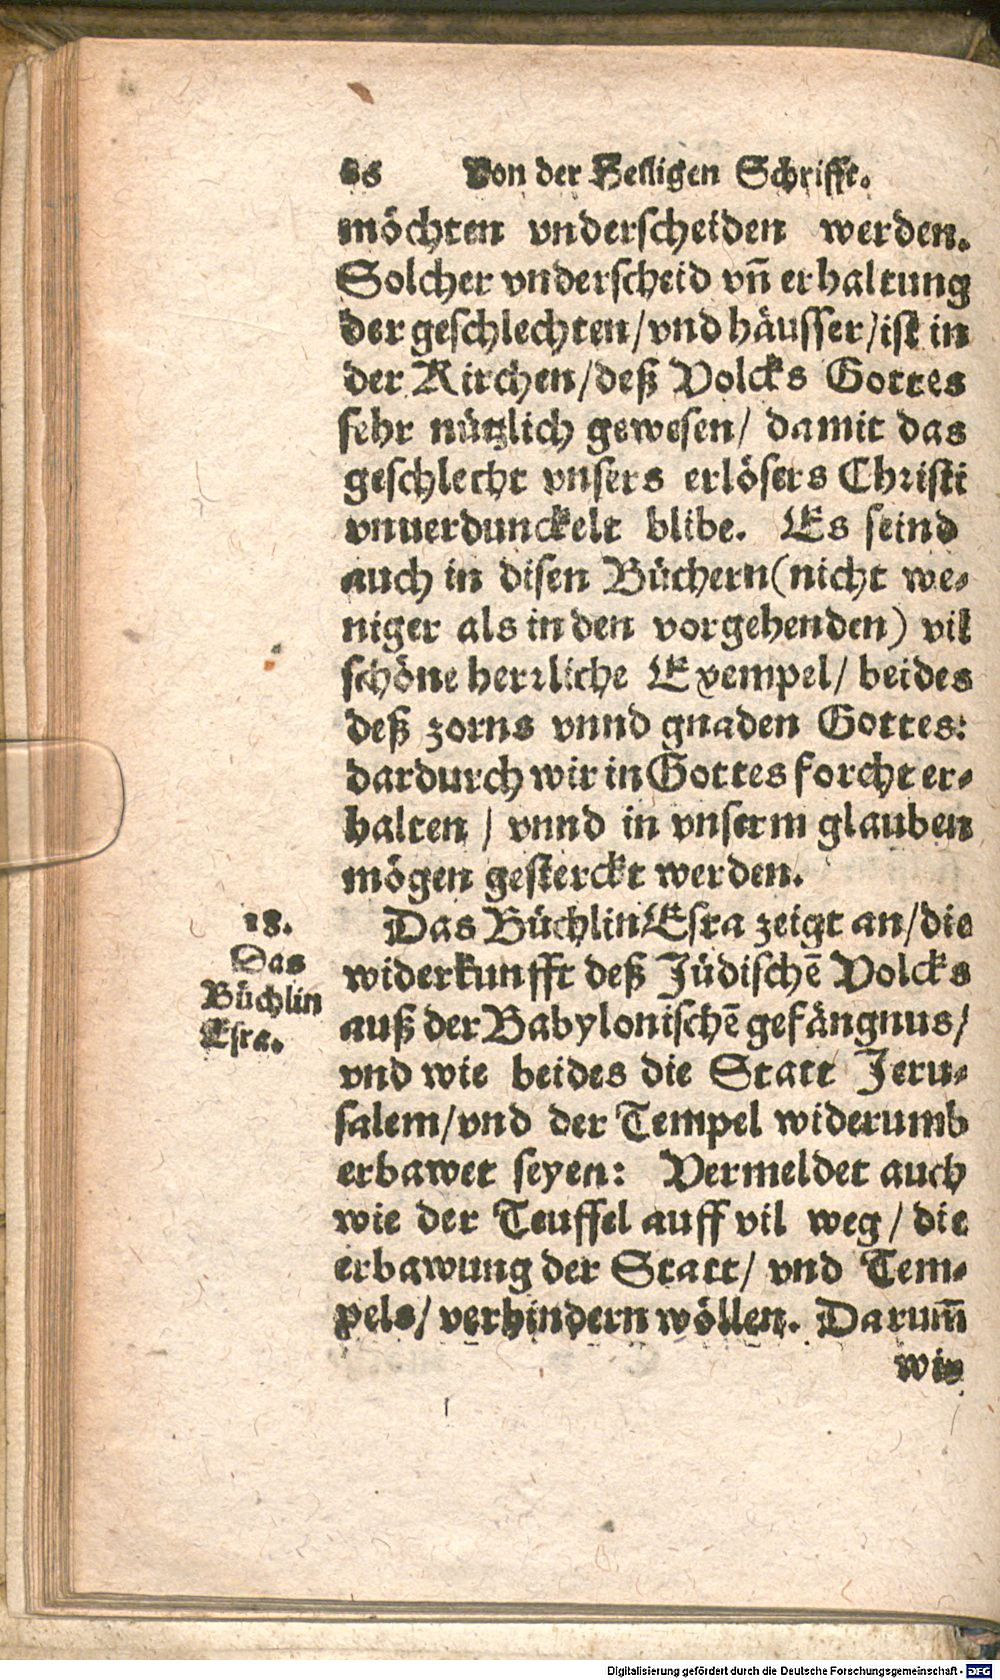 Von der Heiligen Schrifft.
möchten vnderscheiden werden.
Solcher vnderscheid vn̄ erhaltung
der geschlechten/vnd häusser/ist in
der Kirchen/deß Volcks Gottes
sehr nützlich gewesen/ damit das
geschlecht vnsers erlösers Christi
vnuerdunckelt blibe. Es seind
auch in disen Büchern(nicht we-
niger als in den vorgehenden) vil
schöne herrliche Exempel/ beides
deß zorns vnnd gnaden Gottes:
dardurch wir in Gottes forcht er-
halten / vnnd in vnserm glauben
mögen gesterckt werden.
18.
Das
Büchlin
Esra.
Das Büchlin Esra zeigt an/die
widerkunfft deß Jüdischē Volcks
auß der Babylonischē gefängnus/
vnd wie beides die Statt Jeru-
salem/vnd der Tempel widerumb
erbawet seyen: Vermeldet auch
wie der Teuffel auff vil weg/ die
erbawung der Statt/ vnd Tem-
pels/ verhindern wöllen. Darum̄
wir
Digitalisierung gefördert durch die Deutsche Forschungsgemeinschaft - DFG